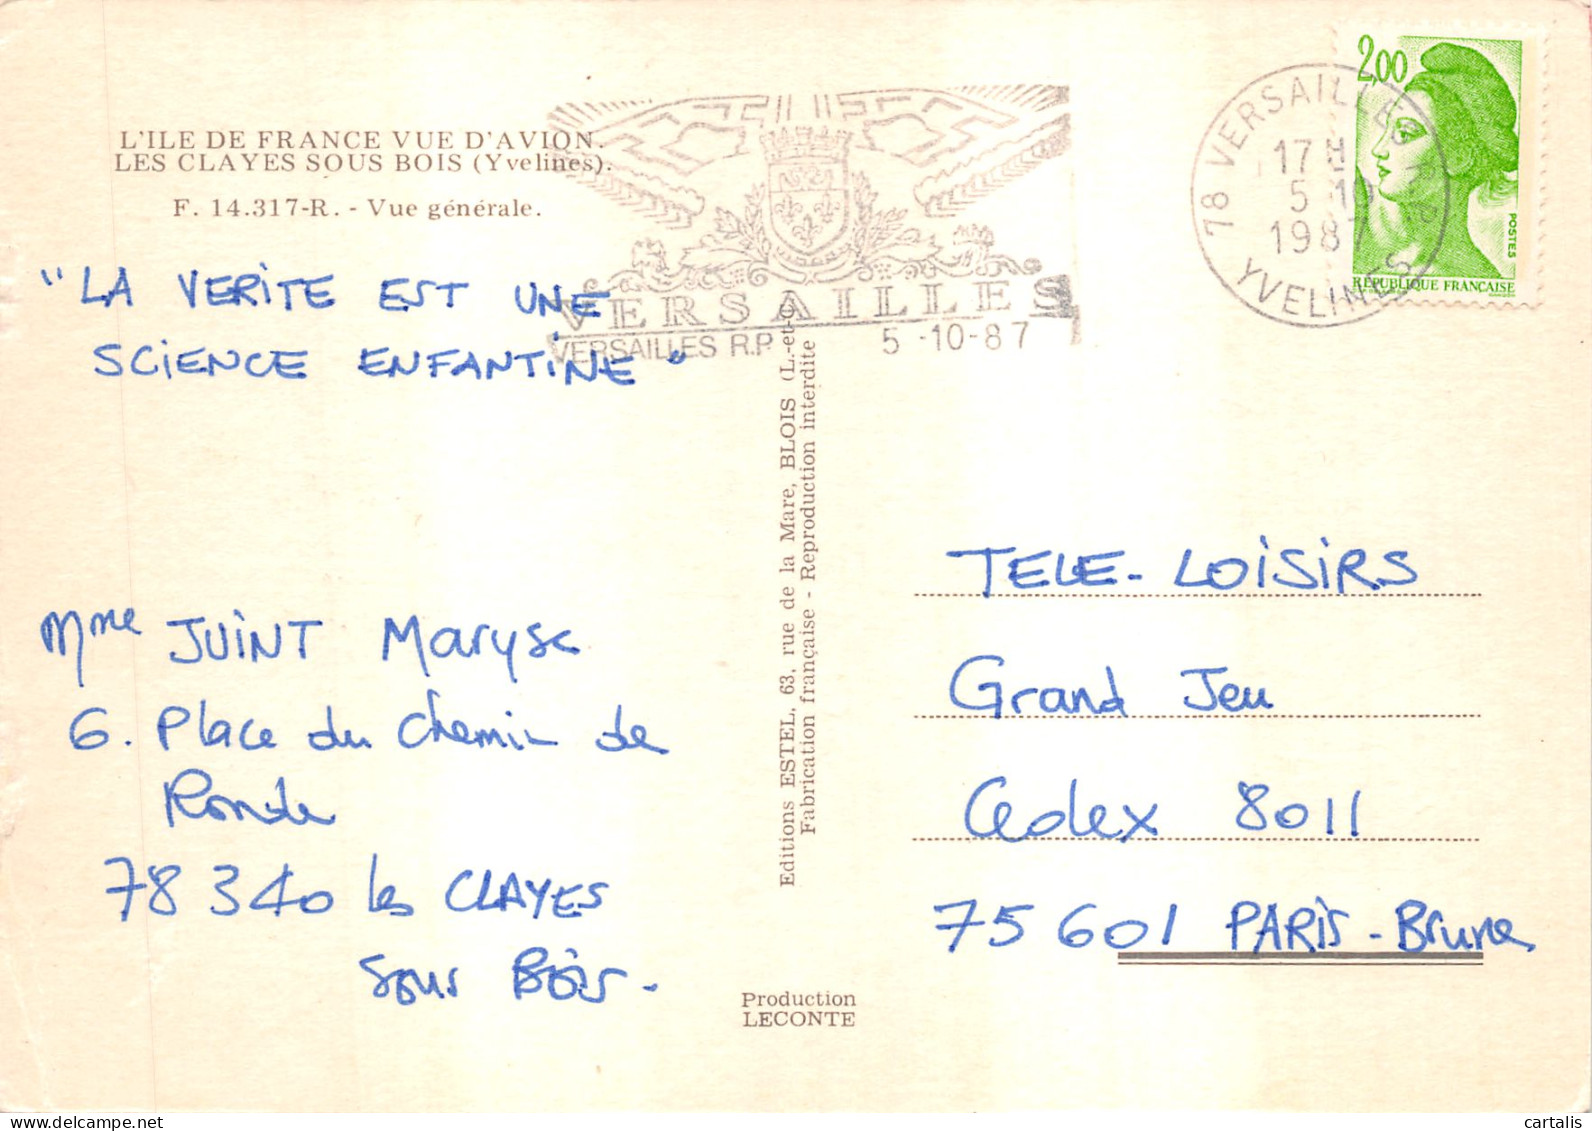 L'ILE DE FRANCE VUE D'AVION.
LES CLAYES SOUS BOIS (Yvelines).
F. 14.317-R. - Vue générale.
"LA VERITE EST UNE
SCIENCE ENFANTINE"
Mme JUINT Maryse
6. Place du Chemin de
Ronde
78 340 les CLAYES
Sous Bois.
VERSAILLES
VERSAILLES R.P. 5-10-87
Editions ESTEL, 63, rue de la Mare, BLOIS (L.-et-C.
Fabrication française - Reproduction interdite
Production
LECONTE
78 VERSAILLES R.P.
17 H
5 10
1987
YVELINES
2,00
POSTES
RÉPUBLIQUE FRANÇAISE
TELE-LOISIRS
Grand Jeu
Cedex 8011
75 601 PARIS-Brune
delcampe.net
cartalis